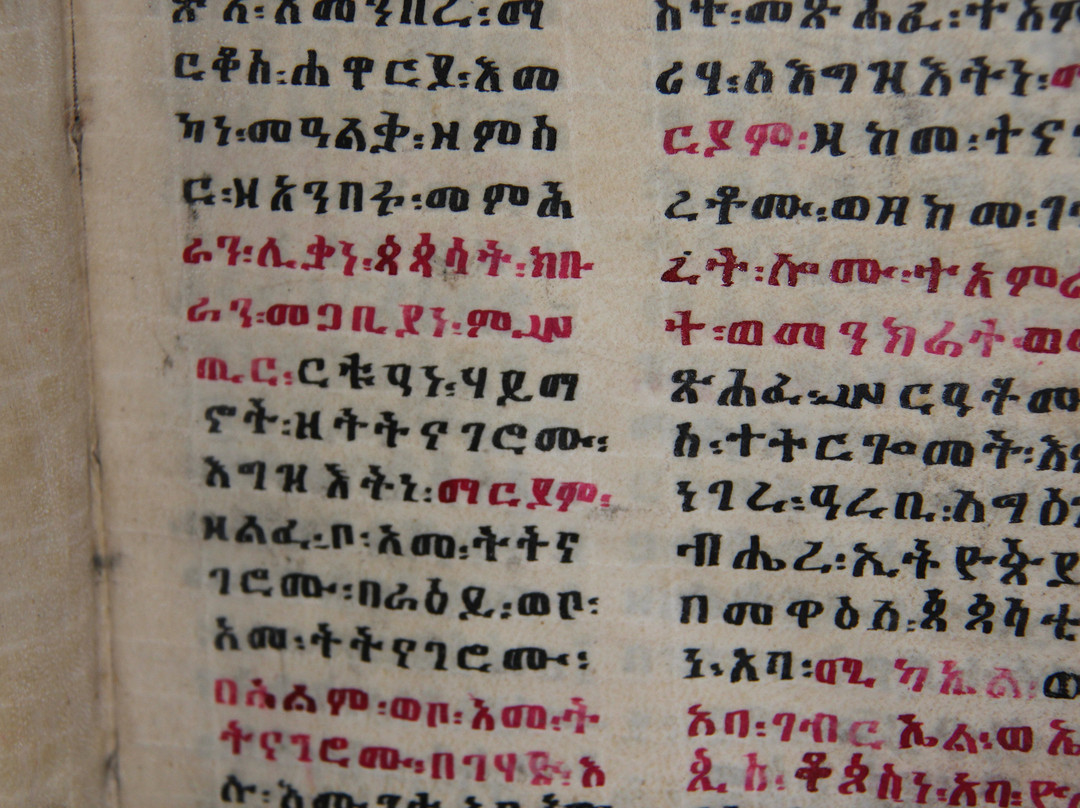 ርቆስ፡ሐዋርያ፡እመ
ካነ፡መዓልቃ፡ዘምስ
ር፡ዘእንበሮ፡መምሕ
ራን፡ሊቃነ፡ጳጳሳት፡ክቡ
ራን፡መጋቢያነ፡ምሥ
ጢር፡ርቱዓነ፡ሃይማ
ኖት፡ዘትትናገሮሙ፡
እግዝእትነ፡ማርያም፡
ዘልፈ፡ቦ፡እመ፡ትትና
ገሮሙ፡በራዕይ፡ወቦ፡
እመ፡ትትናገሮሙ፡
በሕልም፡ወቦ፡እመ፡ት
ትናገሮሙ፡በገሃድ፡እ
እት፡መጽሐፈ፡ተአም
ሪሃ፡ለእግዝእትነ፡ማ
ርያም፡ዘከመ፡ተና
ረቶሙ፡ወዘከመ፡ገ
ፈት፡ሎሙ፡ተአምረ
ተ፡ወመንክራተ፡ወ
ጽሕፈ፡ሥርዓትመ
ለ፡ተተርጐመት፡እ
ነገረ፡ዓረቢ፡ለግዕ
ብሔረ፡ኢትዮጵያ
በመዋዕለ፡ጳጳሳቲ
ነ፡አባ፡ሚካኤል፡ወ
አባ፡ገብርኤል፡ወኤ
ጲስ፡ቆጶስነ፡አባ፡ዮ